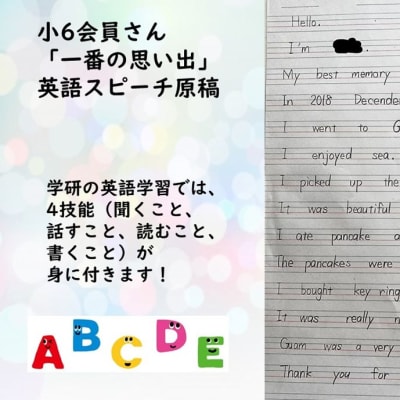 小6会員さん
「一番の思い出」
英語スピーチ原稿
学研の英語学習では、
4技能（聞くこと、
話すこと、読むこと、
書くこと）が
身に付きます！
ABCDE
Hello.
I'm
My best memory
In 2018 Decender
I went to G
I enjoyed sea.
I picked up the
It was beautiful
I ate pancake a
The pancakes were
I bought key ring
It was really n
Guam was a very
Thank you for